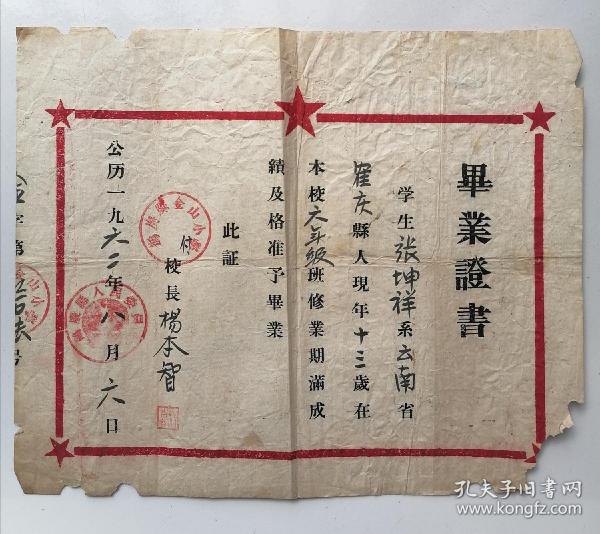 畢業證書
学生张坤祥系云南省
崔庆縣人現年十三歲在
本校六年級班修業期滿成
績及格准予畢業
此証
付校長楊本智
公历一九六二年八月六日
字第
号
孔夫子旧书网
www.kongfz.com